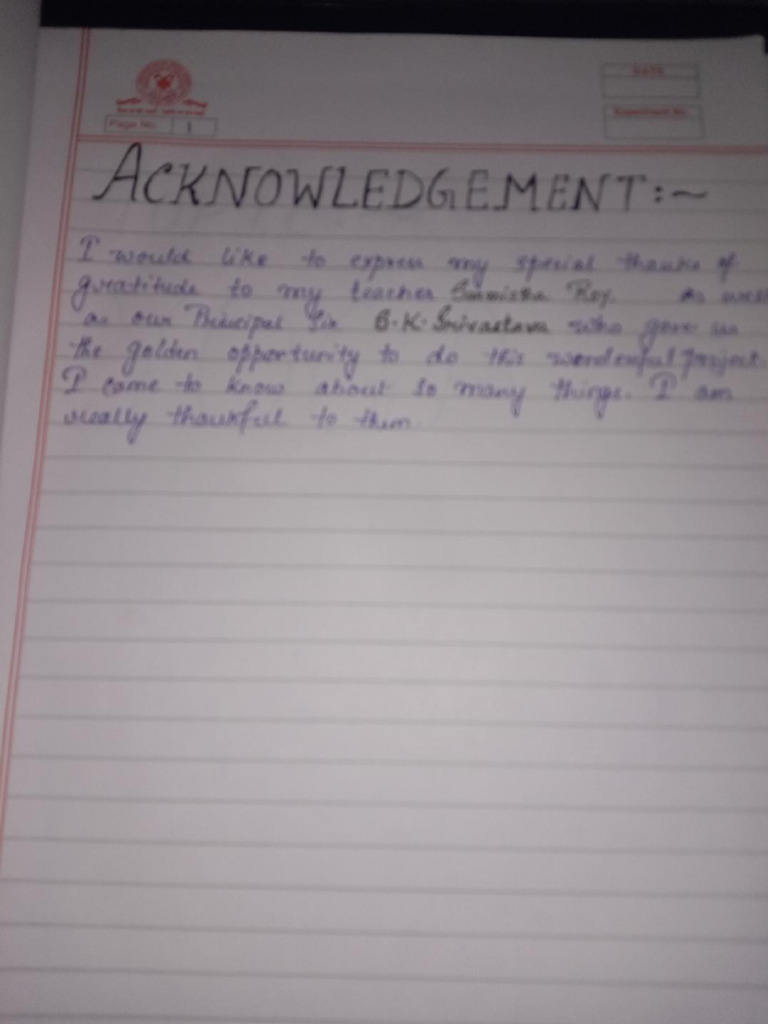 DATE
Experiment No.
Page No. 1
ACKNOWLEDGEMENT:~
I would like to express my special thanks of
gratitude to my teacher Roy. As well
as our Principal Sir B.K. Srivastava who gave us
the golden opportunity to do this wonderful project.
I came to know about so many things. I am
really thankful to them